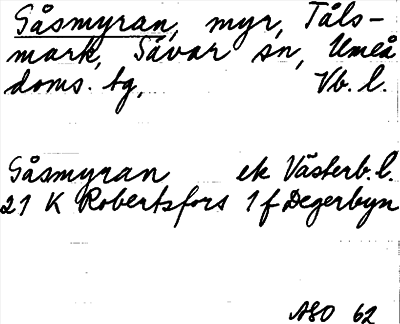 Gåsmyran, myr, Tåls-
mark, Sävar sn, Umeå
doms. tg, Vb. l.
Gåsmyran ek Västerb. l.
21 K Robertsfors 1 f Degerbyn
ASO 62